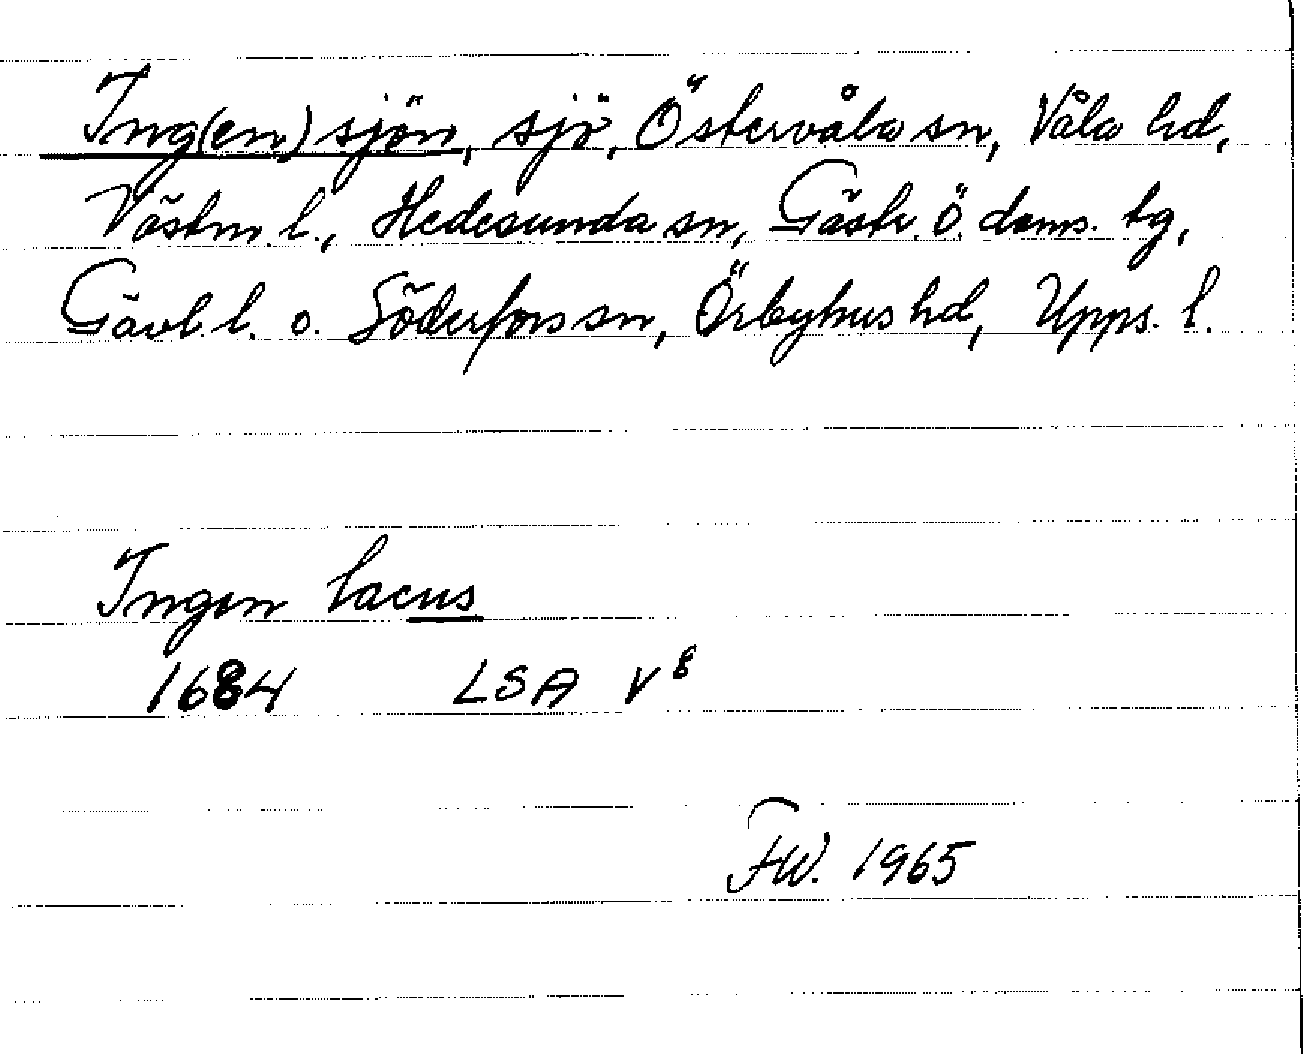 Ing(en)sjön, sjö, Östervåla sn, Våla hd,
Västm. l., Hedesunda sn, Gästr. ö. doms. tg,
Gävl. l. o. Söderfors sn, Örbyhus hd, Upps. l.
Ingen lacus
1684 LSA V⁸
FW. 1965